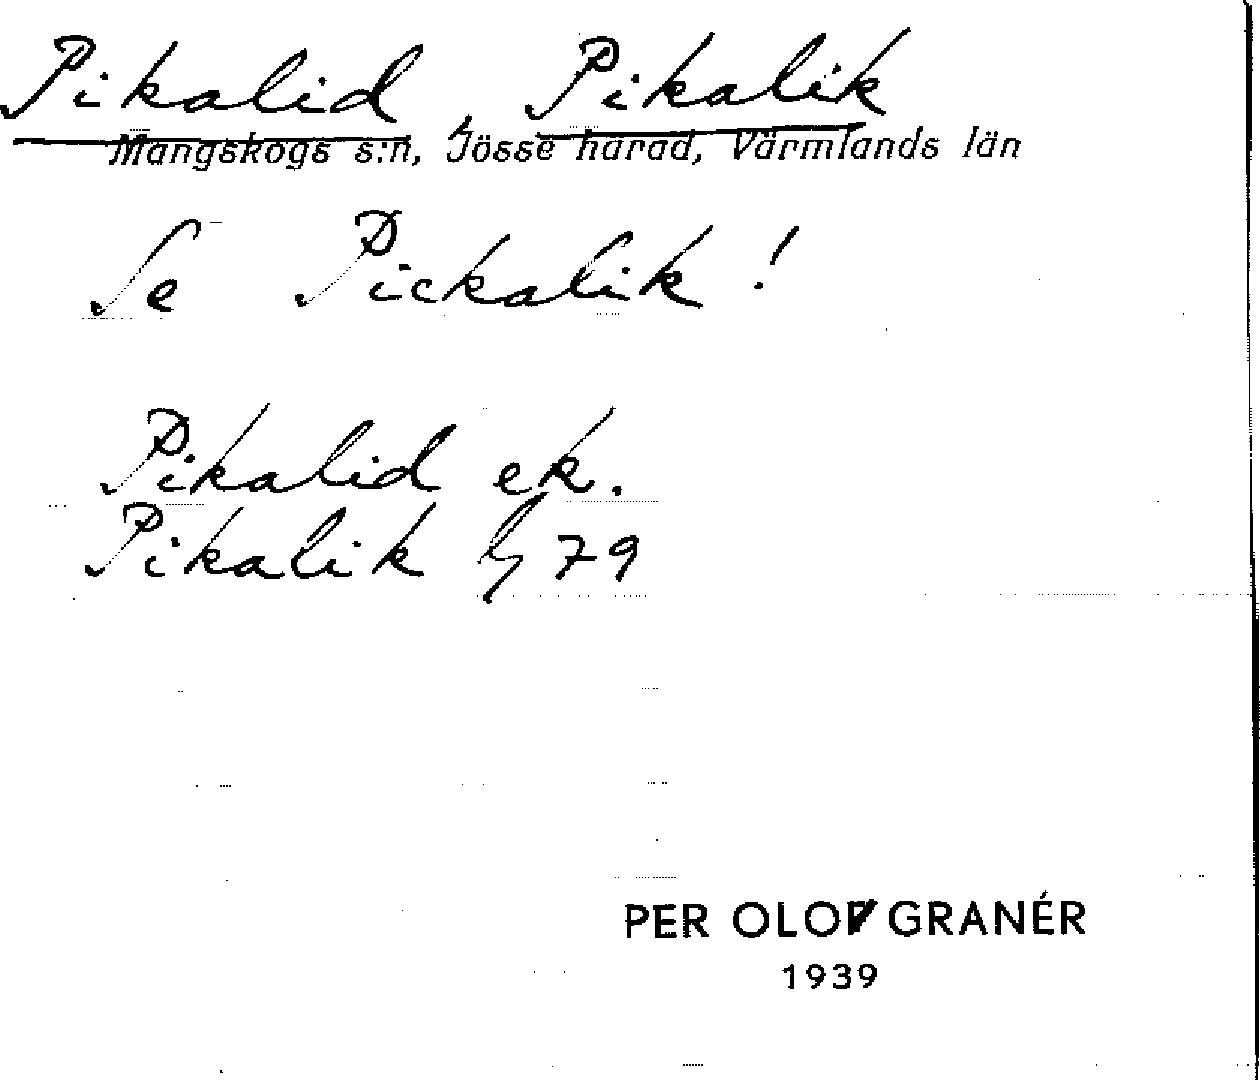 Pikalid, Pikalik
Mangskogs s:n, Jösse härad, Värmlands län
Se Pickalik!
Pikalid ek.
Pikalik 79
PER OLOV GRANÉR
1939